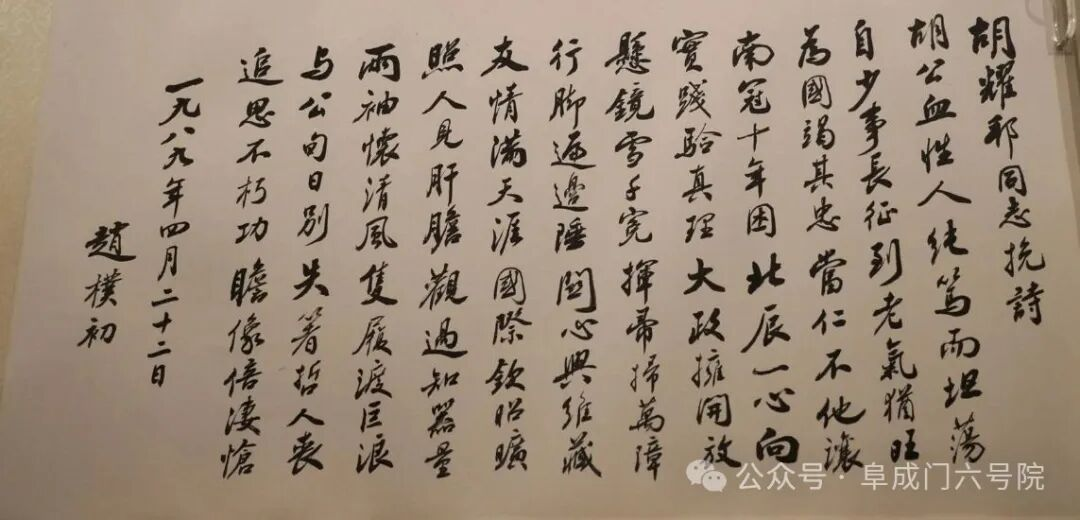 胡耀邦同志挽詩
胡公血性人純篤而坦蕩
自少事長征到老氣猶旺
為國竭其忠當仁不他讓
南冠十年困北辰一心向
實踐驗真理大政擁開放
懸鏡雪千冤揮帚掃萬障
行脚遍邊陲關心興維藏
友情滿天涯國際欽昭曠
照人見肝膽觀過知器量
兩袖懷清風隻履渡巨浪
与公旬日別失箸哲人喪
追思不朽功瞻像倍淒愴
一九八九年四月二十二日
趙樸初
公众号·阜成门六号院